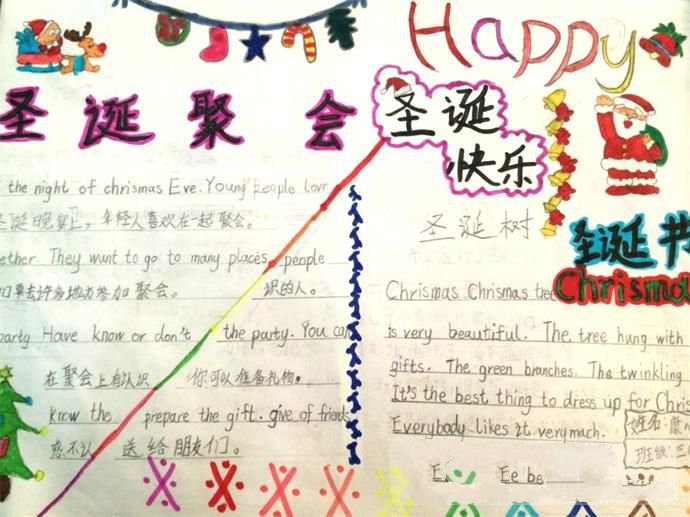 Happy
圣诞聚会
圣诞
快乐
the night of chrismas Eve. Young people love
圣诞晚宴上，年轻人喜欢在一起聚会。
ether. They want to go to many places people
们要去许多地方参加聚会。 识的人。
party Have know or don't the party. You can
在聚会上有认识 你可以准备礼物。
know the prepare the gift. give of friends
或不认 送给朋友们。
圣诞树
圣诞节
Chrisma
Chrismas Chrismas tree
is very beautiful. The tree hung with
gifts. The green branches. The twinkling
It's the best thing to dress up for Chris
Everybody likes it verymach.
姓名:
班级:三
Ee be